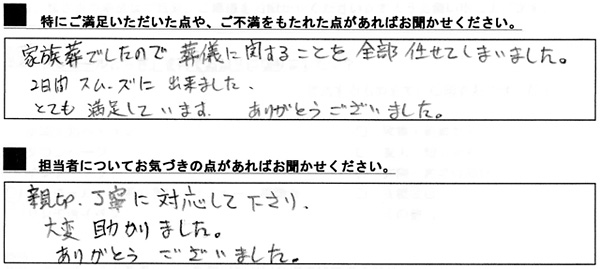 ■ 特にご満足いただいた点や、ご不満をもたれた点があればお聞かせください。
家族葬でしたので 葬儀に関することを 全部 任せてしまいました。
2日間 スムーズに 出来ました。
とても 満足しています。 ありがとうございました。
■ 担当者についてお気づきの点があればお聞かせください。
親切、丁寧に 対応して 下さり、
大変 助かりました。
ありがとう ございました。